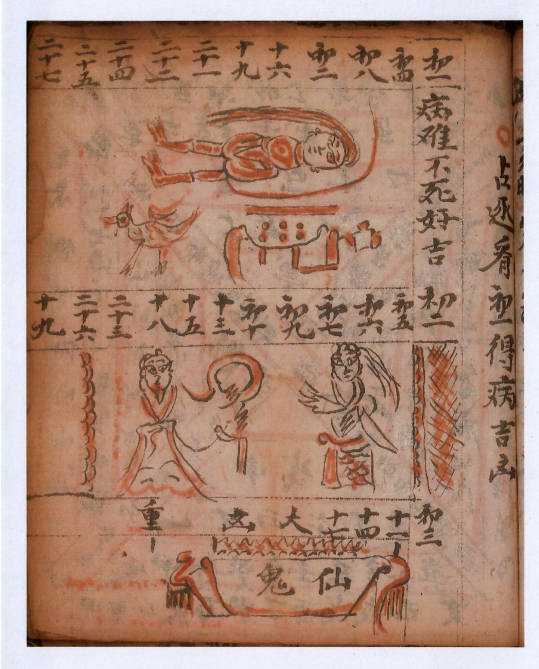 占看初一得病吉凶
初一
病难不死好吉
初四
初八
初二
十六
十九
二十一
二十二
二十四
二十五
二十七
初二
初五
初六
初七
初九
初十
十三
十五
十八
二十三
二十六
十九
初三
十一
十四
十七
大
凶
重
仙鬼